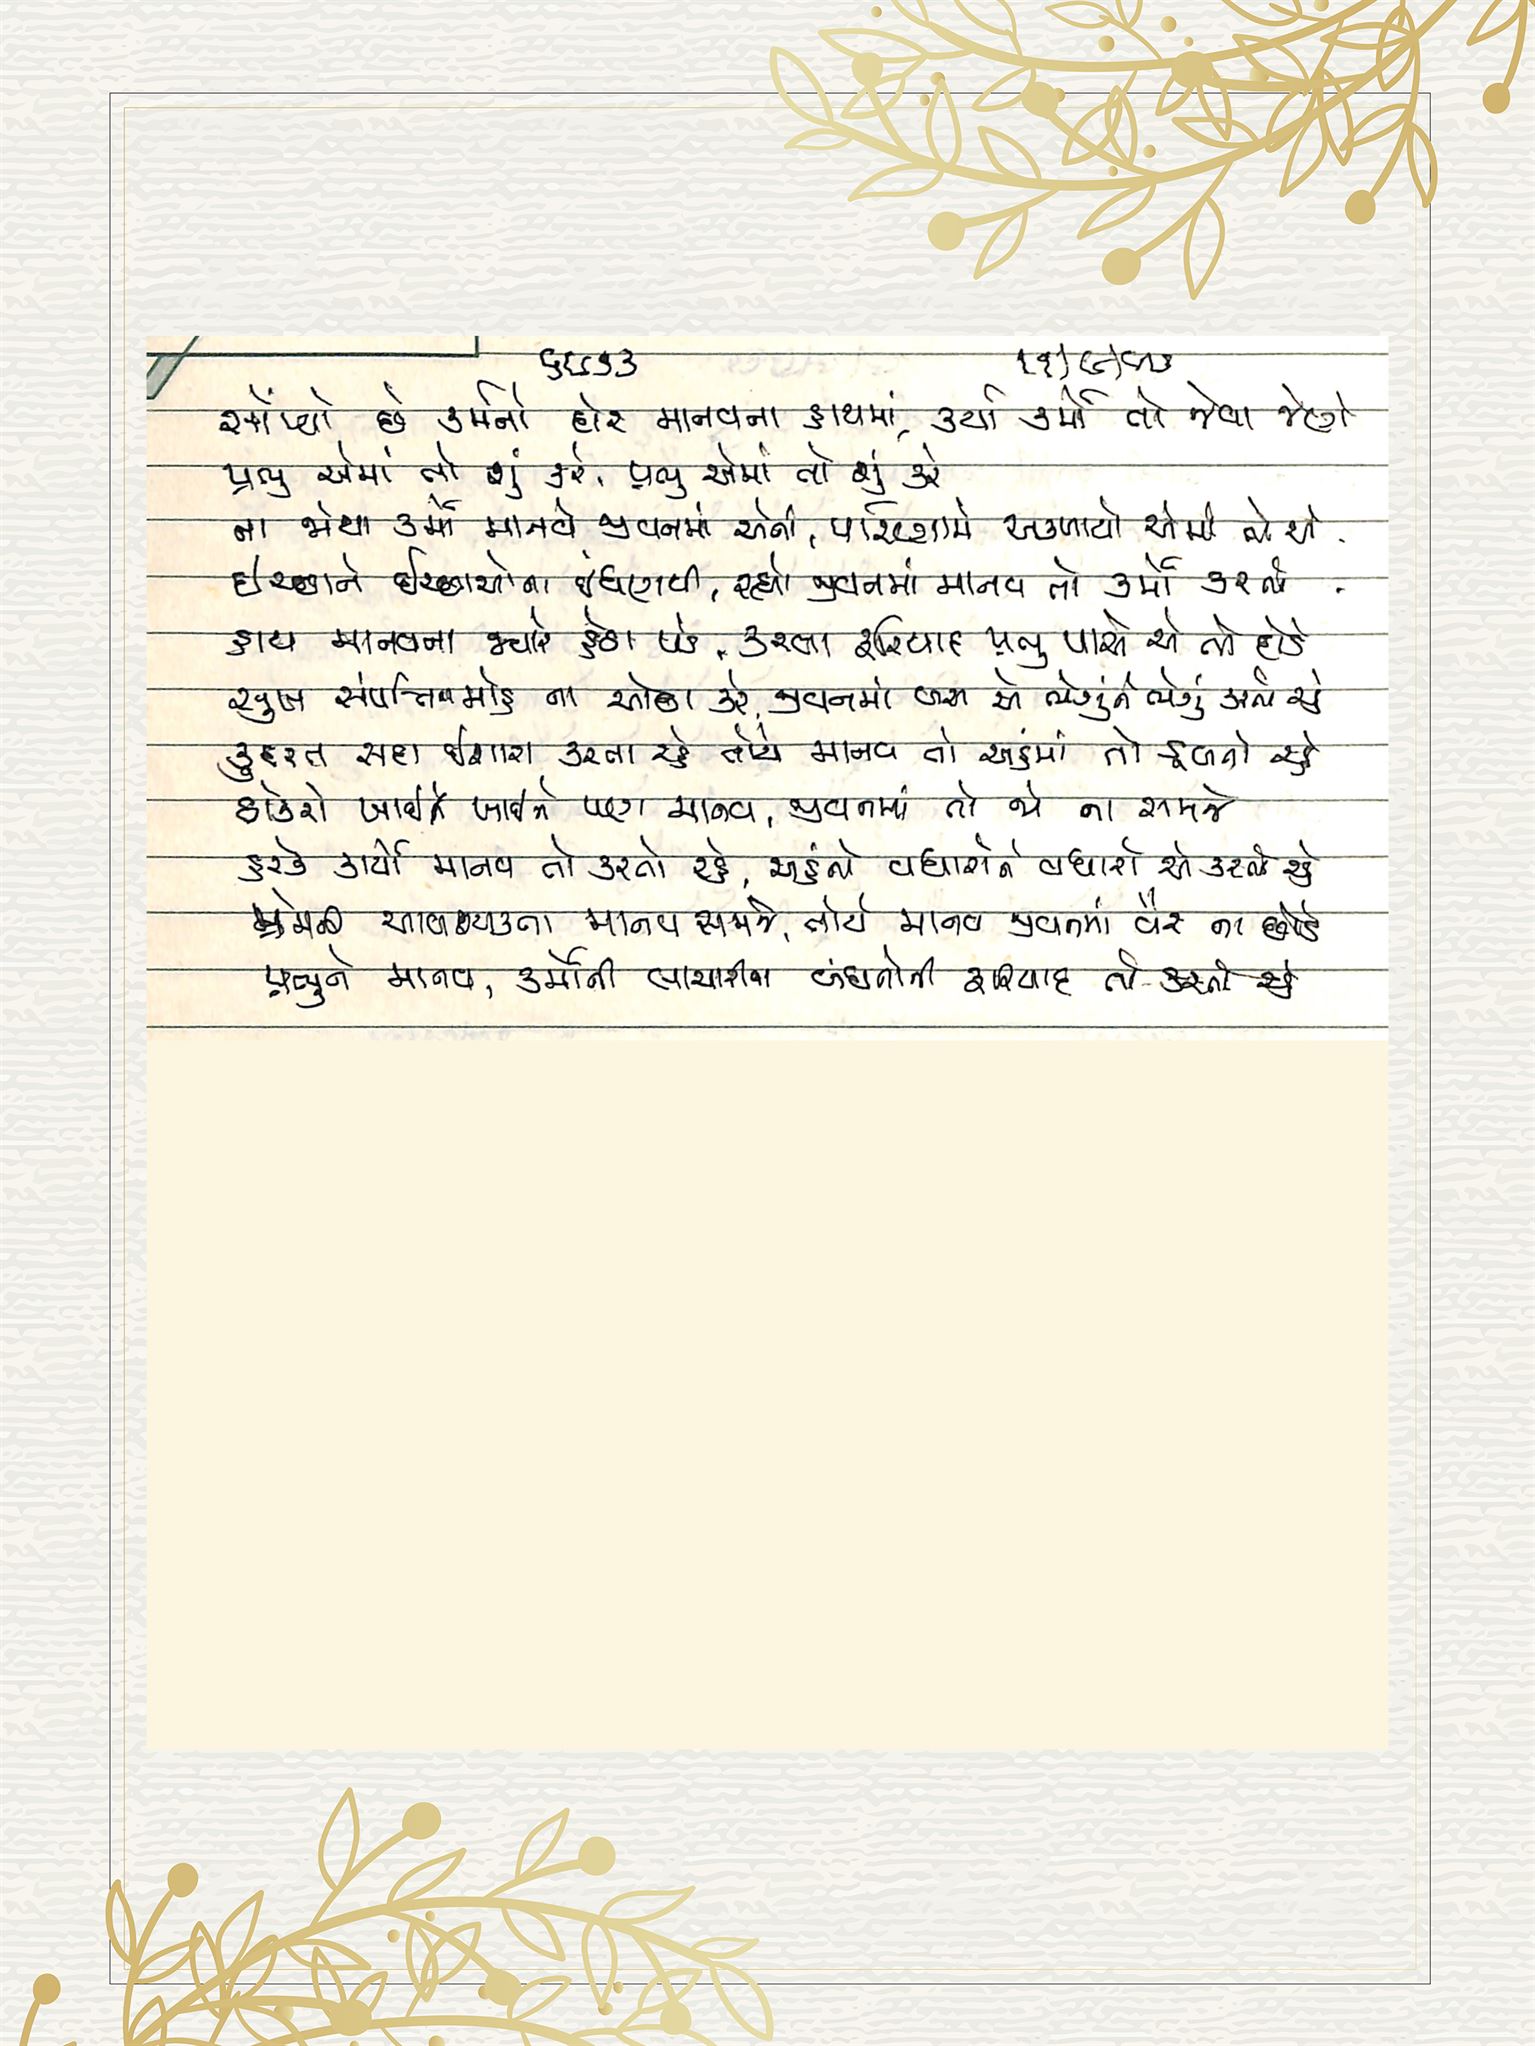 સોંપ્યો છે કર્મનો દોર માનવના હાથમાં, કર્યા કર્મો તો જેવા જેણે
પ્રભુ એમાં તો શું કરે, પ્રભુ એમાં તો શું કરે
ના જોયા કર્મો માનવે જીવનમાં એની, પરિણામે અકળાયો એમાં એ
ઇચ્છાને ઇચ્છાઓના, રહ્યો જીવનમાં માનવ તો કર્મો કરતો
હાથ માનવના જ્યારે હેઠા પડે, કરવા ફરિયાદ પ્રભુ પાસે એ તો દોડે
સુખ સંપત્તિ મોહ ના ઓછા કરે, જીવનમાં બસ એ ભેગુંને ભેગું કરતો રહે
કુદરત સદા ઇશારા કરતા રહે તોયે માનવ તો અહંમાં તો ડૂબતો રહે
ઠોકરો ખાઈને ખાઈને પણ માનવ, જીવનમાં તો જો ના સમજે
હરકે કાર્યો માનવ તો કરતો રહે, અહંનો વધારોને વધારો એ કરતો રહે
પ્રેમની આવશ્યકતા માનવ સમજે, તોયે માનવ જીવનમાં વૈર ના છોડે
પ્રભુને માનવ, કર્મોની લાચારીના બંધનોની ફરિયાદ તો કરતો રહે